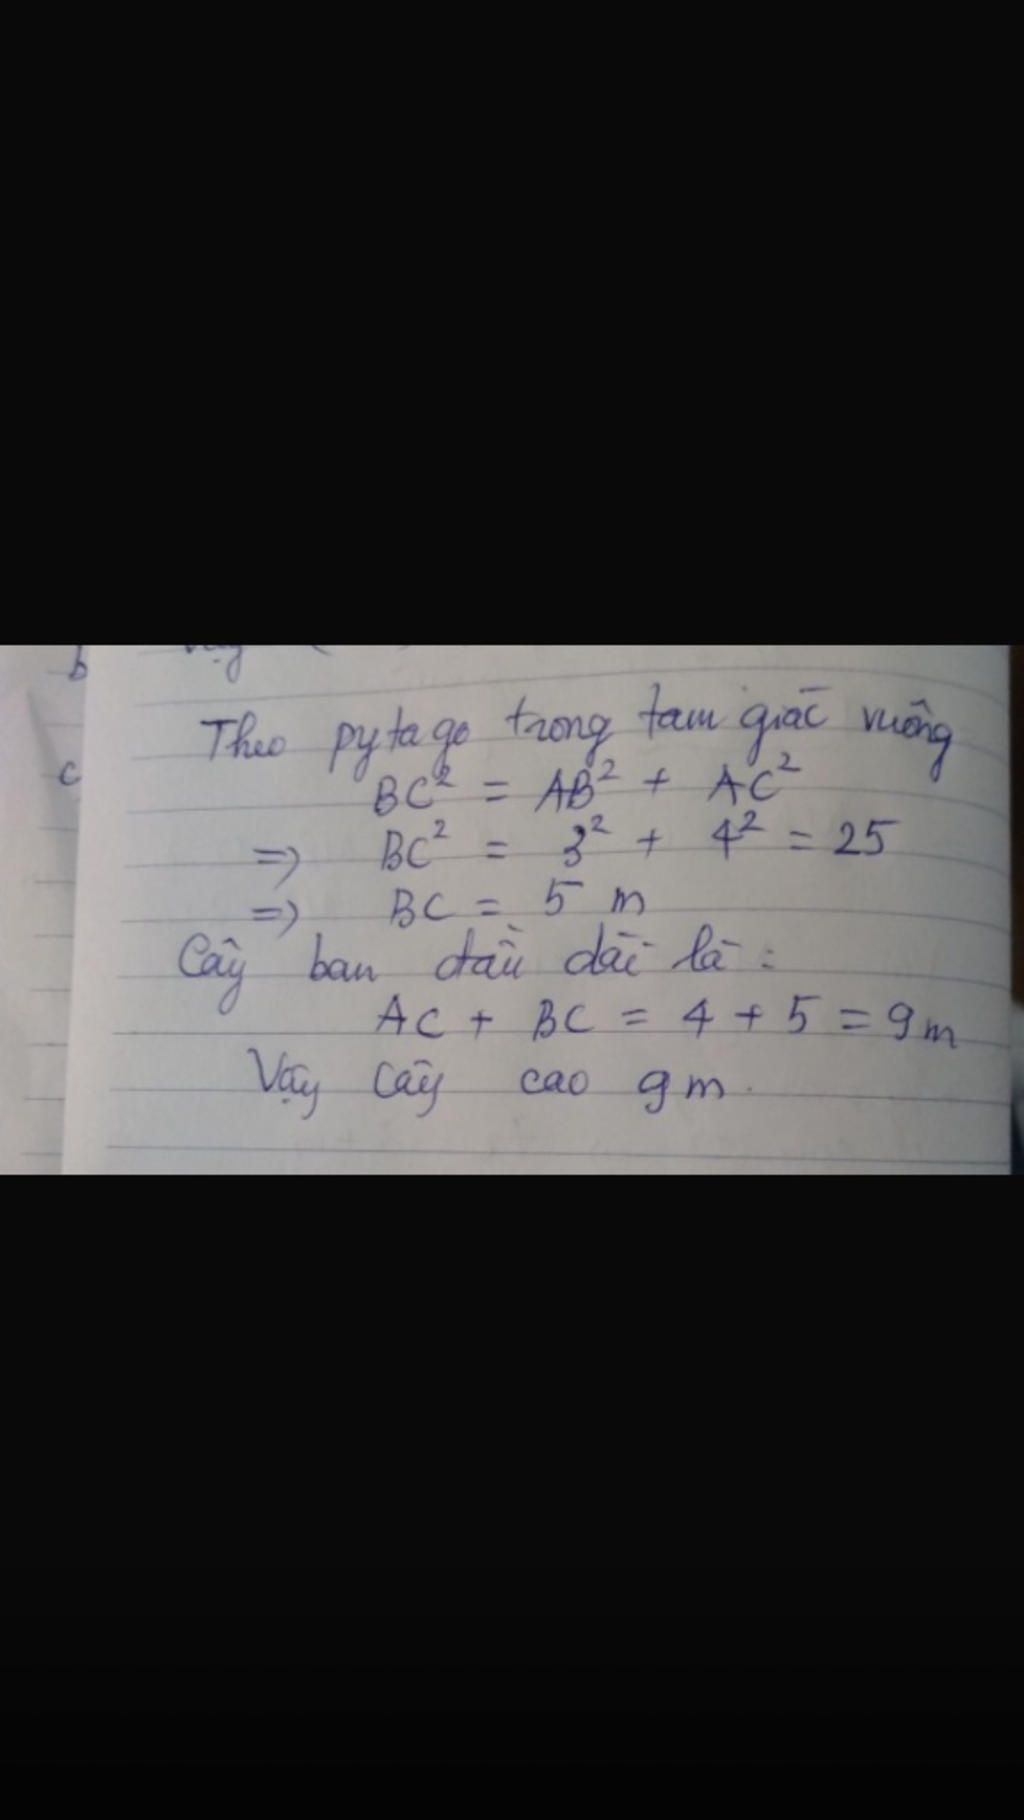 b
c
Theo pytago trong tam giác vuông
BC² = AB² + AC²
=> BC² = 3² + 4² = 25
=> BC = 5 m
Cây ban đầu dài là :
AC + BC = 4 + 5 = 9 m
Vậy cây cao 9 m.